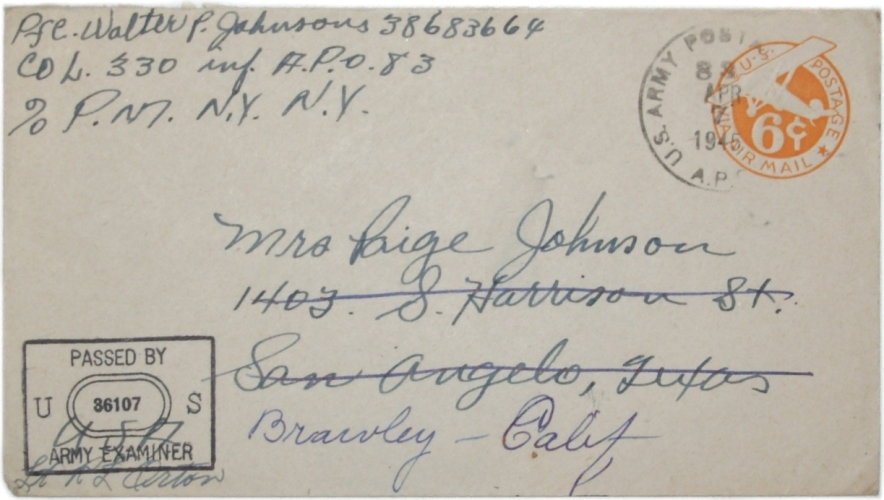 Pfc. Walter P. Johnsons 38683664
CO L. 330 inf. A.P.O. 83
% P.M. N.Y. N.Y.
U.S. ARMY POSTAL
APR
1945
A.P.
U.S. POSTAGE
6¢
AIR MAIL
Mrs Paige Johnson
1403 S. Harrison St.
San Angelo, Texas
Brawley - Calif
PASSED BY
U 36107 S
ARMY EXAMINER